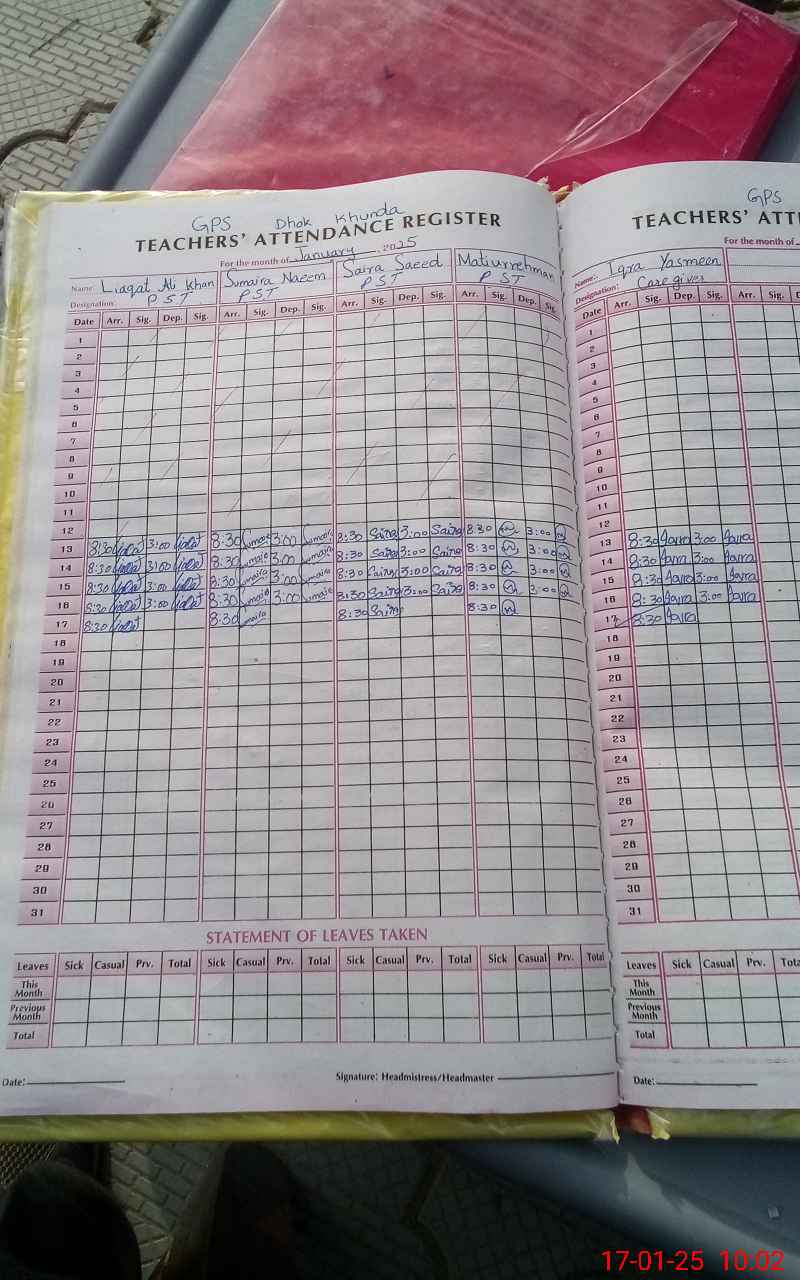 GPS Dhok Khunda
TEACHERS' ATTENDANCE REGISTER
For the month of January, 2025
Name: Liaqat Ali Khan Sumaira Naeem Saira Saeed Matiurrehman
Designation: PST PST PST PST
Date Arr. Sig. Dep. Sig. Arr. Sig. Dep. Sig. Arr. Sig. Dep. Sig. Arr. Sig. Dep. Sig.
1
2
3
4
5
6
7
8
9
10
11
12
13 8:30 3:00 8:30 3:00 8:30 Saira 3:00 Saira 8:30 3:00
14 8:30 3:00 8:30 3:00 8:30 Saira 3:00 Saira 8:30 3:00
15 8:30 3:00 8:30 3:00 8:30 Saira 3:00 Saira 8:30 3:00
16 8:30 3:00 8:30 3:00 8:30 Saira 3:00 Saira 8:30 3:00
17 8:30 8:30 8:30 Saira 8:30
18
19
20
21
22
23
24
25
26
27
28
29
30
31
STATEMENT OF LEAVES TAKEN
Leaves Sick Casual Prv. Total Sick Casual Prv. Total Sick Casual Prv. Total Sick Casual Prv. Total
This Month
Previous Month
Total
Date: Signature: Headmistress/Headmaster
GPS
TEACHERS' ATT
For the month of
Name: Iqra Yasmeen
Designation: Care giver
Date Arr. Sig. Dep. Sig. Arr. Sig.
1
2
3
4
5
6
7
8
9
10
11
12
13 8:30 3:00
14 8:30 3:00
15 8:30 3:00
16 8:30 3:00
17 8:30
18
19
20
21
22
23
24
25
26
27
28
29
30
31
Leaves Sick Casual Prv. Tota
This Month
Previous Month
Total
Date:
17-01-25 10:02